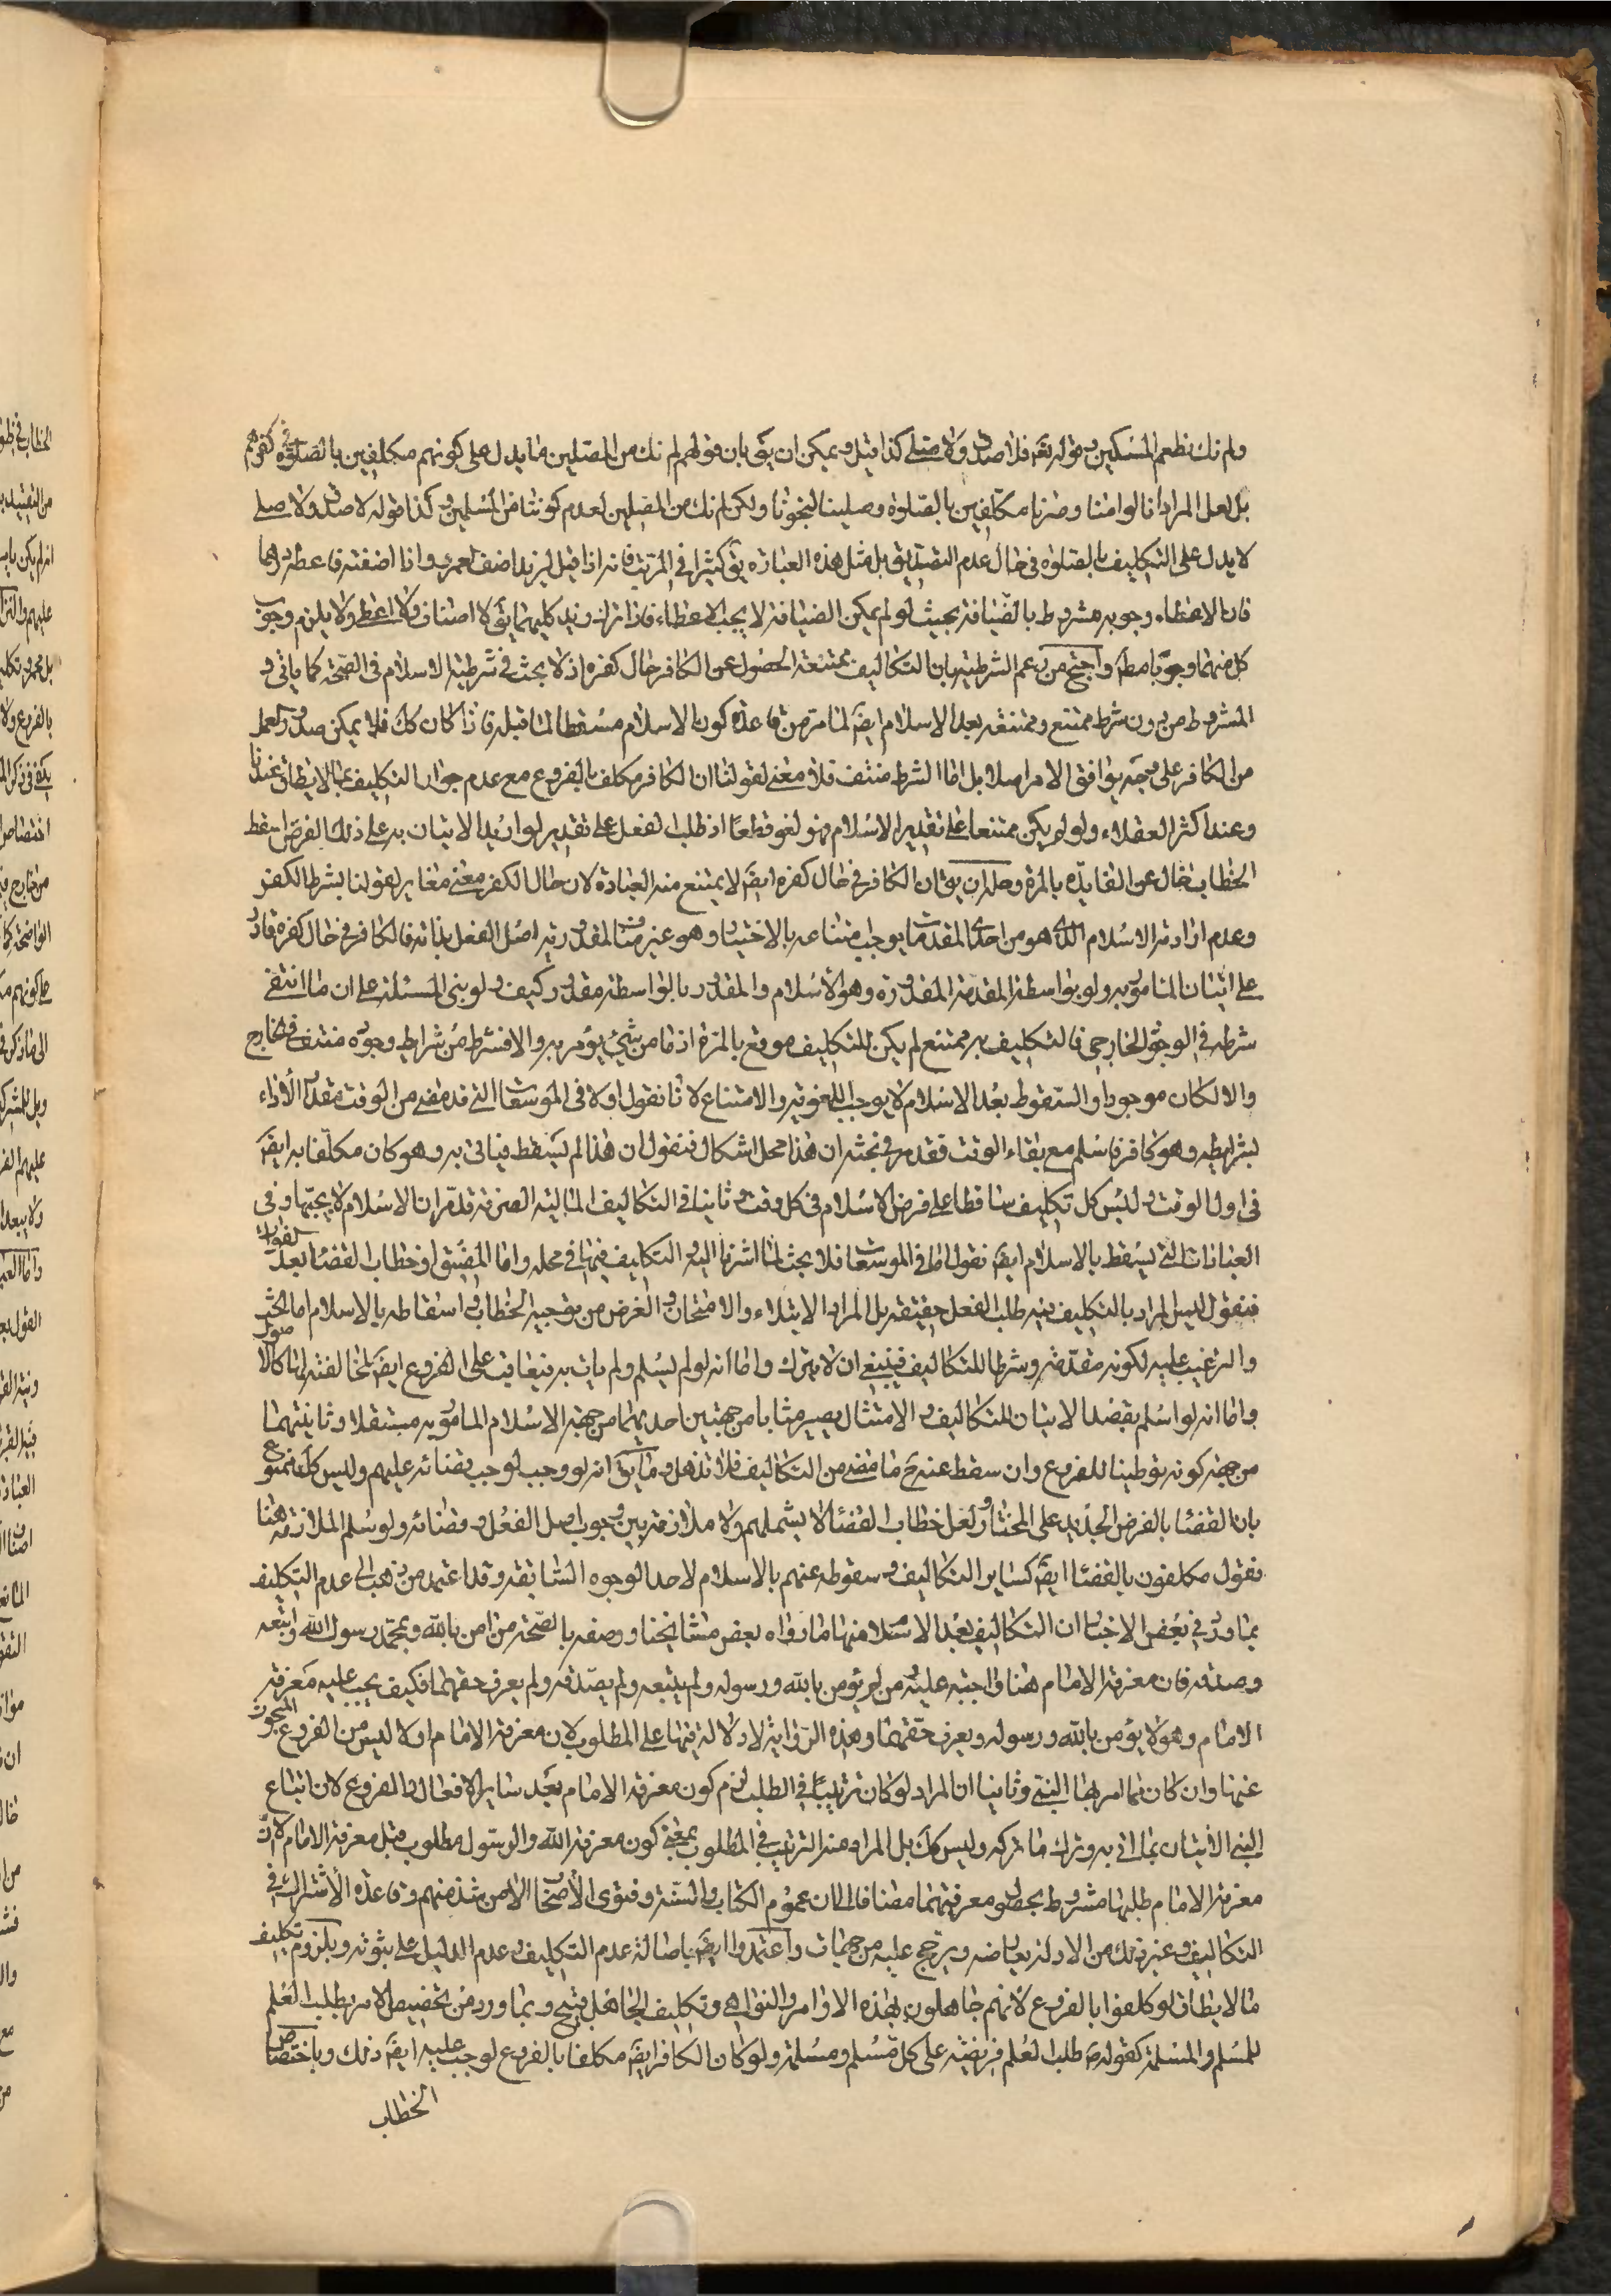 ولم نك نطعم المسكين وقوله تعـ فلا صدق ولا صلى كذا قيل ويمكن ان يق بان قولهم لم نك من المصلين مما يدل على كونهم مكلفين بالصلوة في كفرهم
بل لعل المراد انا لو امنا وصرنا مكلفين بالصلوة وصلينا لنجونا ولكن لم نك من المصلين لعدم كوننا من المسلمين وكذا قوله لا صدق ولا صلى
لا يدل على التكليف بالصلوة في حال عدم التصديق بل مثل هذه العبارة يق كثيرا في المرتب فانه اذا قيل لزيد اضف عمرو واذا اضفته فاعطه درهما
فان الاعطاء وجوبه مشروط بالضيافة بحيث لو لم يمكن الضيافة لا يجب الاعطاء فاذا ترك زيد كليهما يق لا اضاف ولا اعطى ولا يلزم وجوب
كل منهما وجوبا مطـ واحتج من زعم الشرطية بان التكاليف ممتنعة الحصول عن الكافر حال كفره اذ لا بحث في شرطية الاسلام في الصحة كما ياتي و
المشروط من دون شرط ممتنع وممتنعة بعد الاسلام ايضـ لما مر من قاعدة كون الاسلام مسقطا لما قبله فاذا كان كك فلا يمكن صدور العمل
من الكافر على وجه يوافق الامر اصلا بل اما الشرط منتف فلا معنى لقولنا ان الكافر مكلف بالفروع مع عدم جواز التكليف بما لا يطاق عندنا
وعند اكثر العقلاء ولو لم يكن ممتنعا على تقدير الاسلام فهو لغو قطعا اذ طلب الفعل على تقدير لو اريد الاتيان به على ذلك الفرض اسقط
الخطاب خال عن الفايدة بالمرة وحله ان يق ان الكافر في حال كفره ايضـ لا يمتنع منه العبادة لان حال الكفر معنى مغاير لقولنا بشرط الكفر
وعدم ارادته الاسلام الذي هو من احدى المقدمات يوجب امتناعه بالاختيار وهو غير مناف لمقدورية اصل الفعل بذاته فالكافر في حال كفره قادر
على اتيان المامور به ولو بواسطة المقدمة المقدورة وهو الاسلام والمقدور بالواسطة مقدور كيف ولو بني المسئلة على ان ما انتفى
شرطه في الوجود الخارجي فالتكليف به ممتنع لم يكن للتكليف موقع بالمرة اذ ما من شيء يؤمر به والا فشرط من شرايط وجوده منتف في الخارج
والا لكان موجودا والسقوط بعد الاسلام لا يوجب اللغوية والامتناع لانا نقول اولا في الموسعات التي قد مضى من الوقت مقدار الاداء
بشرايطه وهو كافر فاسلم مع بقاء الوقت فقد مر في بحثه ان هذا محل اشكال فنقول ان هذا لم يسقط فياتي به وهو كان مكلفا به ايضـ
في اول الوقت وليس كل تكليف ساقطا على فرض الاسلام في كل وقت وثانيا في التكاليف المالية الصرفة قد مر ان الاسلام لا يجبها وفي
العبادات التي يسقط بالاسلام ايضـ نقول اما في الموسعات فلا بحث لما اشرنا اليه التكليف فيها في محله واما المضيق او خطاب القضا بعد الفوات
فنقول ليس المراد بالتكليف فيه طلب الفعل حقيقة بل المراد الابتلاء والامتحان والغرض من توجيه الخطاب واسقاطه بالاسلام اما الحث
والترغيب عليه لكونه مقدمة وشرطا للتكاليف فينبغي ان لا يترك واما انه لو لم يسلم ولم يات به فيعاقب على الفروع ايضـ لمخالفته لها كالاصول
واما انه لو اسلم بقصد الاتيان للتكاليف والامتثال يصير مثابا من جهتين احديهما من جهة الاسلام المامور به مستقلا وثانيتهما
من جهة كونه توطينا للفروع وان سقط عنه ح ما مضى من التكاليف فلا تذهل وما يق انه لو وجب لوجب قضائه عليهم وليس كك ممنوع
بان القضا بالفرض الجديد على المختار ولعل خطاب القضا لا يشملهم ولا ملازمة بين وجوب اصل الفعل وقضائه ولو سلم الملازمة هنا
نقول مكلفون بالقضا ايضـ كساير التكاليف وسقوطه عنهم بالاسلام لاحد الوجوه السابقة وقد اعتمد من ذهب الى عدم التكليف
بما ورد في بعض الاخبار ان التكاليف بعد الاسلام منها ما رواه بعض مشايخنا ووصفه بالصحة من امن بالله وبمحمد رسول الله واتبعه
وصدقه فان معرفة الامام هنا واجبة عليه ومن لم يؤمن بالله ورسوله ولم يتبعه ولم يصدقه ولم يعرف حقهما فكيف يجب عليه معرفة
الامام وهو لا يؤمن بالله ورسوله ويعرف حقهما وهذه الرواية لا دلالة فيها على المطلوب لان معرفة الامام اولا ليس من الفروع المبحوث
عنها وان كان مما امر بها النبي وثانيا ان المراد لو كان ترتيبا في الطلب لزم كون معرفة الامام بعد ساير الافعال والفروع لان اتباع
النبي الاتيان بما اتى به وترك ما تركه وليس كك بل المراد منه الترتيب في المطلوب بمعنى كون معرفة الله والرسول مطلوب قبل معرفة الامام لا ان
معرفة الامام طلبها مشروط بحصول معرفتهما مضافا الى ان عموم الكتاب والسنة وفتوى الاصحاب الا من شذ منهم وقاعدة الاشتراك في
التكاليف وغير ذلك من الادلة يعارضه ويرجح عليه من جهات واعتمدوا ايضـ باصالة عدم التكليف وعدم الدليل على ثبوته وبلزوم تكليف
ما لا يطاق لو كلفوا بالفروع لانهم جاهلون بهذه الاوامر والنواهي وتكليف الجاهل قبيح وبما ورد من تخصيص الامر بطلب العلم
للمسلم والمسلمة كقوله ص طلب العلم فريضة على كل مسلم ومسلمة ولو كان الكافر ايضـ مكلفا بالفروع لوجب عليه ايضـ ذلك وباختصاص
الخطاب